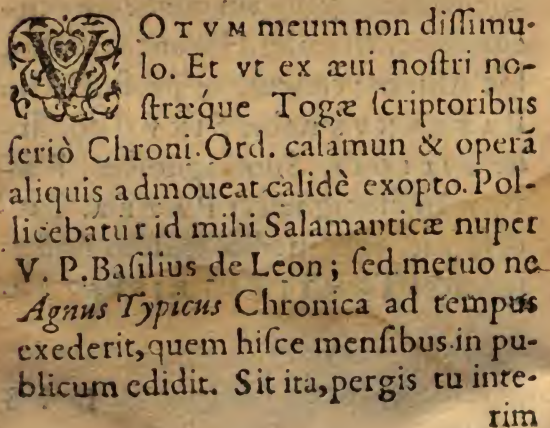 VOTVM meum non diſſimu-
lo. Et vt ex æui noſtri no-
ſtræq́ue Togæ ſcriptoribus
ſeriò Chroni. Ord. calamun & operã
aliquis admoueat calidè exopto. Pol-
licebatur id mihi Salamanticæ nuper
V. P. Baſilius de Leon; ſed metuo ne
Agnus Typicus Chronica ad tempus
exederit, quem hiſce menſibus in pu-
blicum edidit. Sit ita, pergis tu inte-
rim